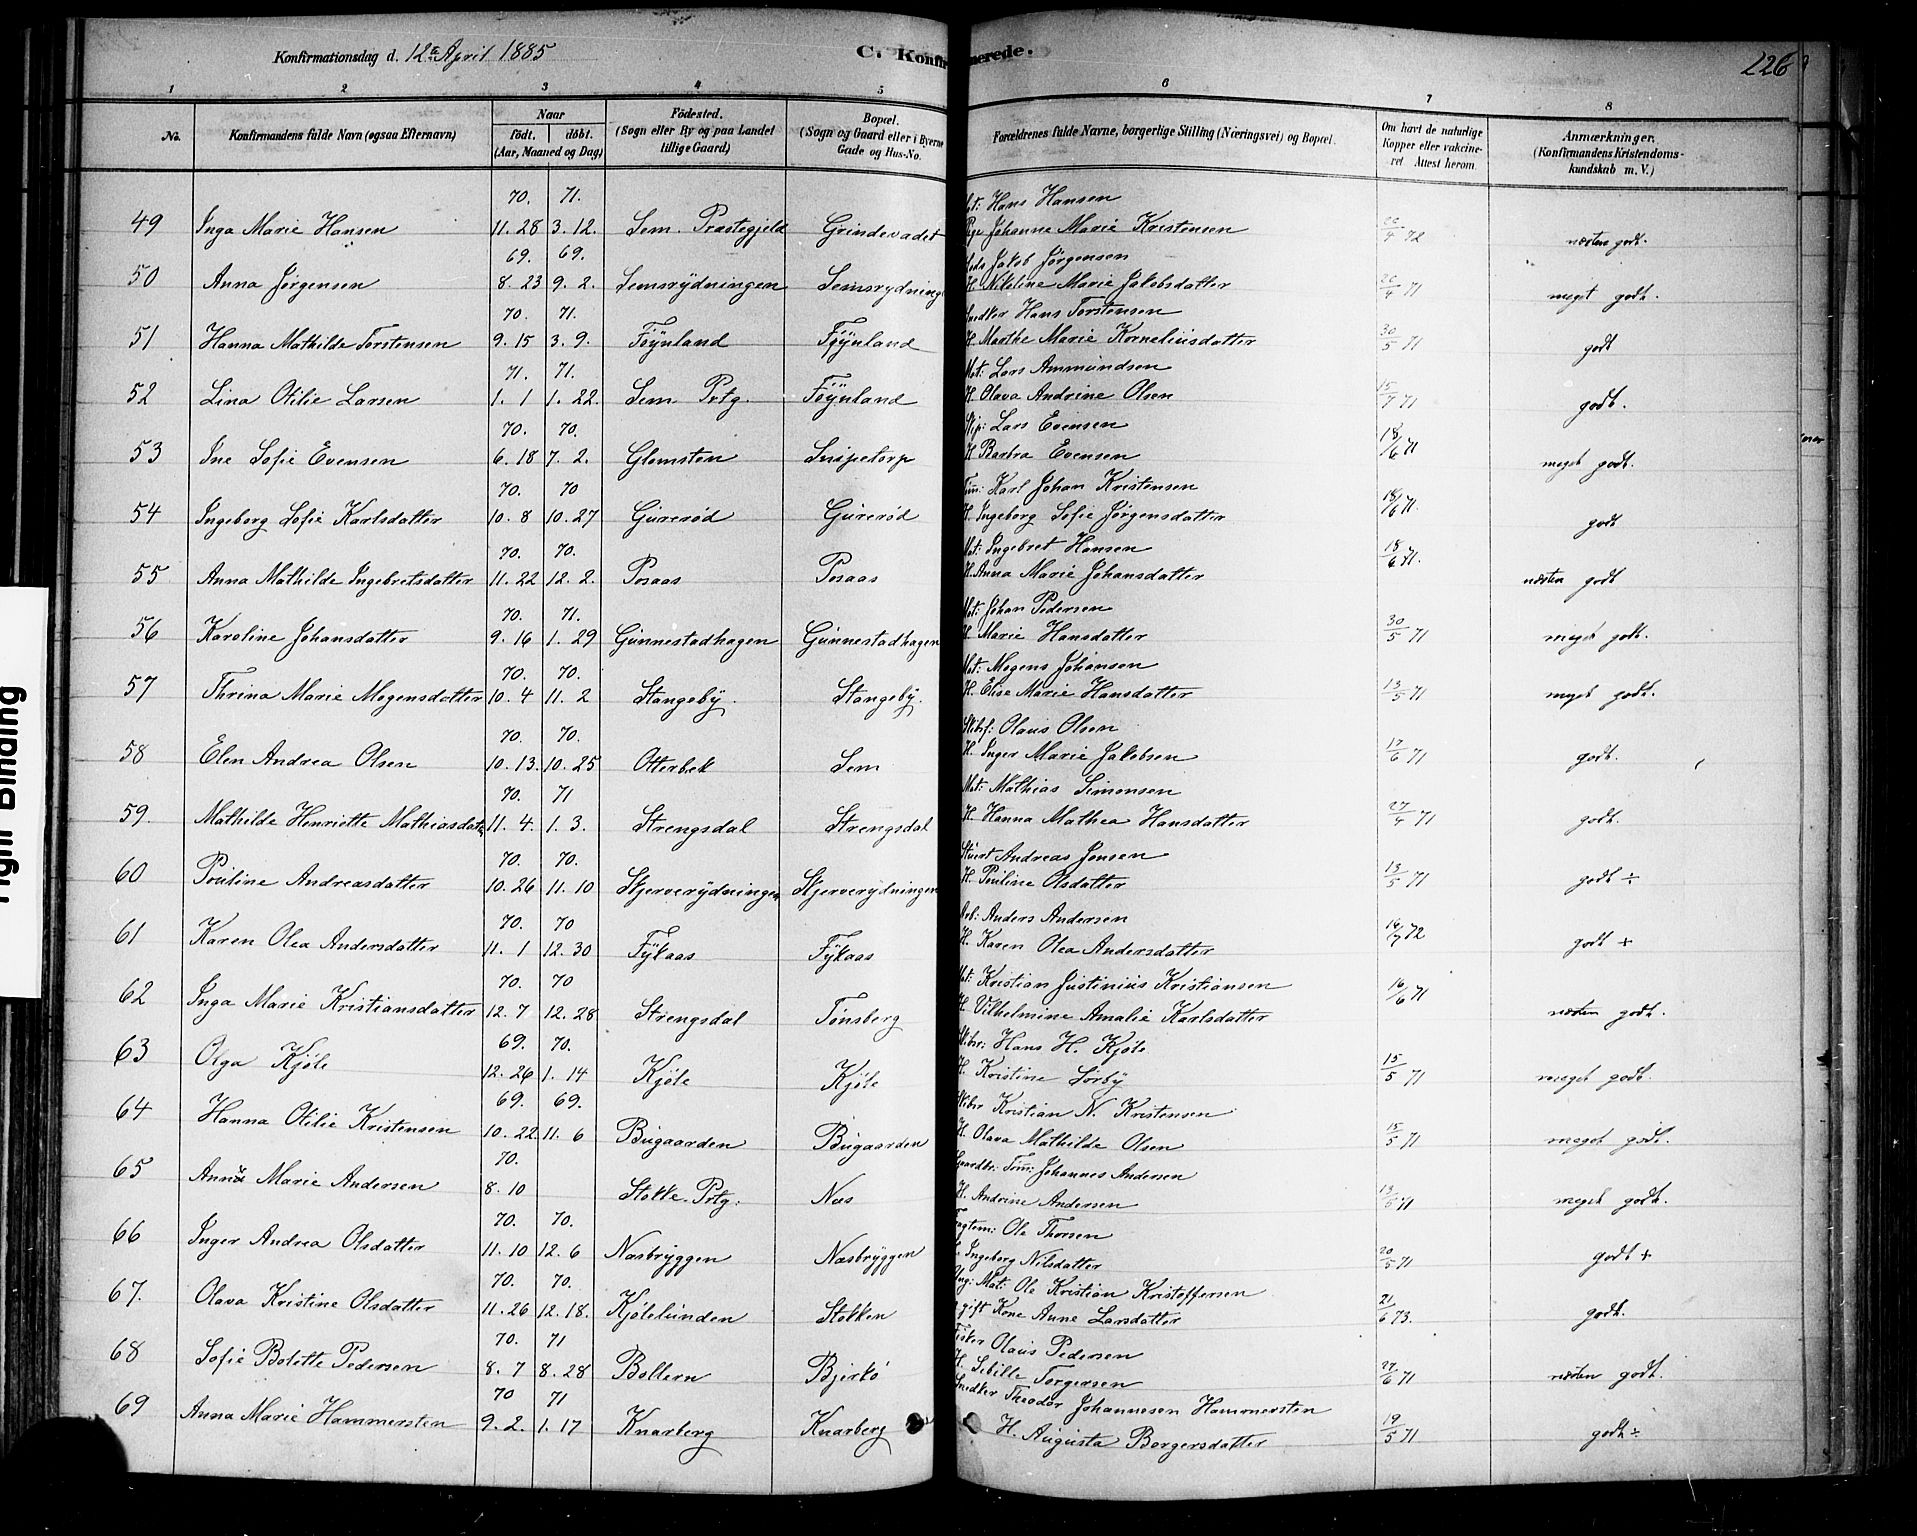 Konfirmationsdag d. 12te April 1885
C. Konfirmerede.
226
1 2 3 4 5 6 7 8
No.
Konfirmandens fulde Navn (ogsaa Efternavn)
Naar
födt. döbt.
(Aar, Maaned og Dag)
Födested.
(Sogn eller By og paa Landet
tillige Gaard)
Bopæl.
(Sogn og Gaard eller i Byerne
Gade og Hus-No.
Forældrenes fulde Navne, borgerlige Stilling (Næringsvei) og Bopæl.
Om havt de naturlige
Kopper eller vakcine-
ret Attest herom.
Anmærkninger.
(Konfirmandens Kristendoms-
kundskab m. V.)
70. 71. Hans Hansen
49 Inga Marie Hansen 11. 28 3. 12. Sem Præstegjeld Grindevadet Johanne Marie Kristensen 4 72 næsten godt.
69. 69. Jakob Jørgensen
50 Anna Jørgensen 8. 23 9. 2. Semsrydningen Semsrydning H. Nikoline Marie Jakobsdatter 4 71 meget godt.
70. 71. Snedker Hans Torstensen
51 Hanna Mathilde Torstensen 9. 15 3. 9. Føynland Føynland H. Marthe Marie Korneliusdatter 30/5 71 godt
71. 71. Mat: Lars Ammundsen
52 Lina Otilie Larsen 1. 1 1. 22. Sem Prtg. Føynland H. Olava Andrine Olsen 15/7 71 godt.
70. 70. Lars Evensen
53 Ine Sofie Evensen 6. 18 7. 2. Glomsten Snipetorp H. Barbra Evensen 18/6 71 meget godt.
70. 70 Tøm: Karl Johan Kristensen
54 Ingeborg Sofie Karlsdatter 10. 8 10. 27 Gurerød Gurerød H. Ingeborg Sofie Jørgensdatter 18/6 71. godt
70. 70. Mat: Ingebret Hansen
55 Anna Mathilde Ingebretsdatter 11. 22 12. 2. Posaas Posaas H. Anna Marie Johansdatter 18/6 71. næsten godt
70. 71. Mat: Johan Pedersen
56 Karoline Johansdatter 9. 16 1. 29 Gunnestadhagen Gunnestadhagen H. Marie Hansdatter 30/5 71 meget godt.
70. 70. Mat: Mogens Johansen
57 Thrina Marie Mogensdatter 10. 4 11. 2 Stangeby. Stangeby. H. Elise Marie Hansdatter 13/5 71 meget godt.
70. 70. Olaus Olsen
58 Elen Andrea Olsen 10. 13. 10. 25 Otterbek Sem H. Inger Marie Jakobsen 17/6 71 godt.
70. 71 Mat: Mathias Simonsen
59. Mathilde Henriette Mathiasdatter 11. 4. 1. 3. Strengsdal Strengsdal H. Hanna Mathea Hansdatter 27/4 71 godt.
70. 70. Andreas Jensen
60 Pouline Andreasdatter 10. 26 11. 10 Skjerverydningen Skjerverydningen H. Pouline Olsdatter 13/5 71 godt ÷
70. 70 Arb: Anders Andersen
61 Karen Olea Andersdatter 11. 1 12. 30 Fykaas Fykaas H. Karen Olea Andersdatter 16/7 72 godt +
70. 70 Mat: Kristian Justinius Kristiansen
62 Inga Marie Kristiansdatter 12. 7 12. 28 Strengsdal Tønsberg H. Vilhelmine Amalie Karlsdatter 16/6 71 næsten godt.
69. 70. Hans H. Kjøle
63 Olga Kjøle 12. 26 1. 14 Kjøle Kjøle H. Kristine Sørby 15/5 71 meget godt.
69. 69. Kristian N. Kristensen
64 Hanna Otilie Kristensen 10. 22. 11. 6 Bugaarden Bugaarden H. Olava Mathilde Olsen 15/5 71 meget godt.
70. Gaardbr: Tøm: Johannes Andersen
65 Anna Marie Andersen 8. 10 Stokke Prtg. Nes H. Andrine Andersen 71 meget godt.
70. 70. Ole Thorsen
66 Inger Andrea Olsdatter 11. 10 12. 6 Næsbryggen Næsbryggen H. Ingeborg Nilsdatter 20/5 71 godt +
70. 70. Ung: Mat: Ole Kristian Kristoffersen
67. Olava Kristine Olsdatter 11. 26 12. 18. Kjølelunden Stokken gift Kone Anne Larsdatter 21/6 73. godt.
70. 71 Fisker Olaus Pedersen
68 Sofie Bolette Pedersen 8. 7 8. 28 Bollern Bjerkø H. Sibille Torgersen 27/6 71 næsten godt.
70 71 Snedker Theodor Johannesen Hammersten
69 Anna Marie Hammersten 9. 2. 1. 17 Knarberg Knarberg H. Augusta Borgersdatter 19/5 71 godt ÷
Tight Binding